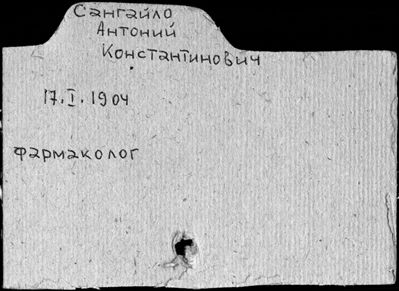 Сангайло
Антоний
Константинович
17.I.1904
фармаколог